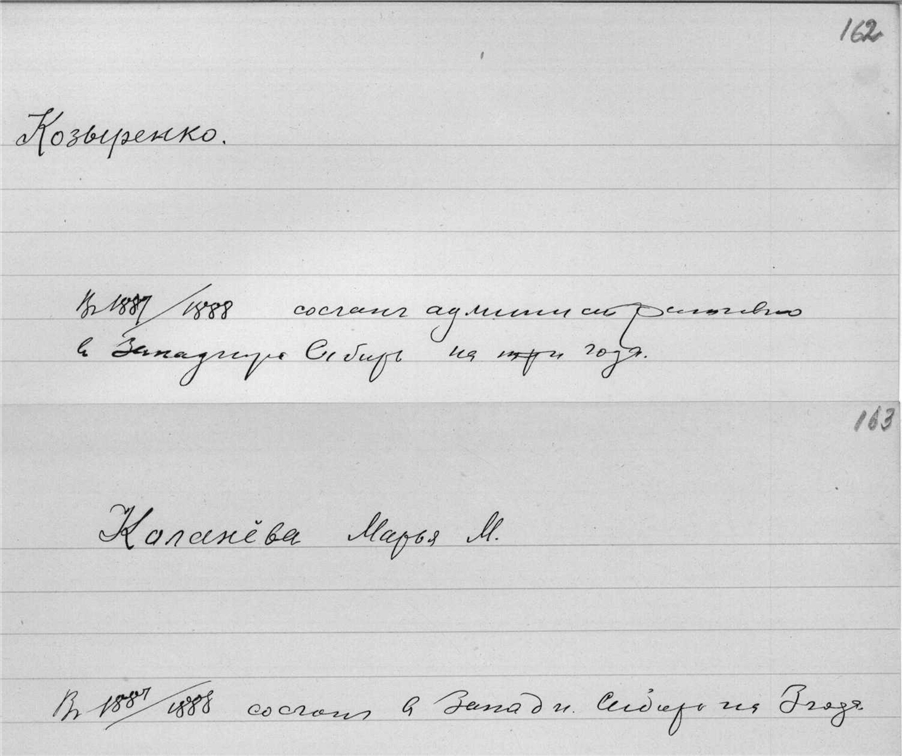 162
Козыренко.
В 1887/1888 сослан административно
в Западную Сибирь на три года.
163
Каланёва Марья М.
В 1887/1888 сослана в Западн. Сибирь на 3 года